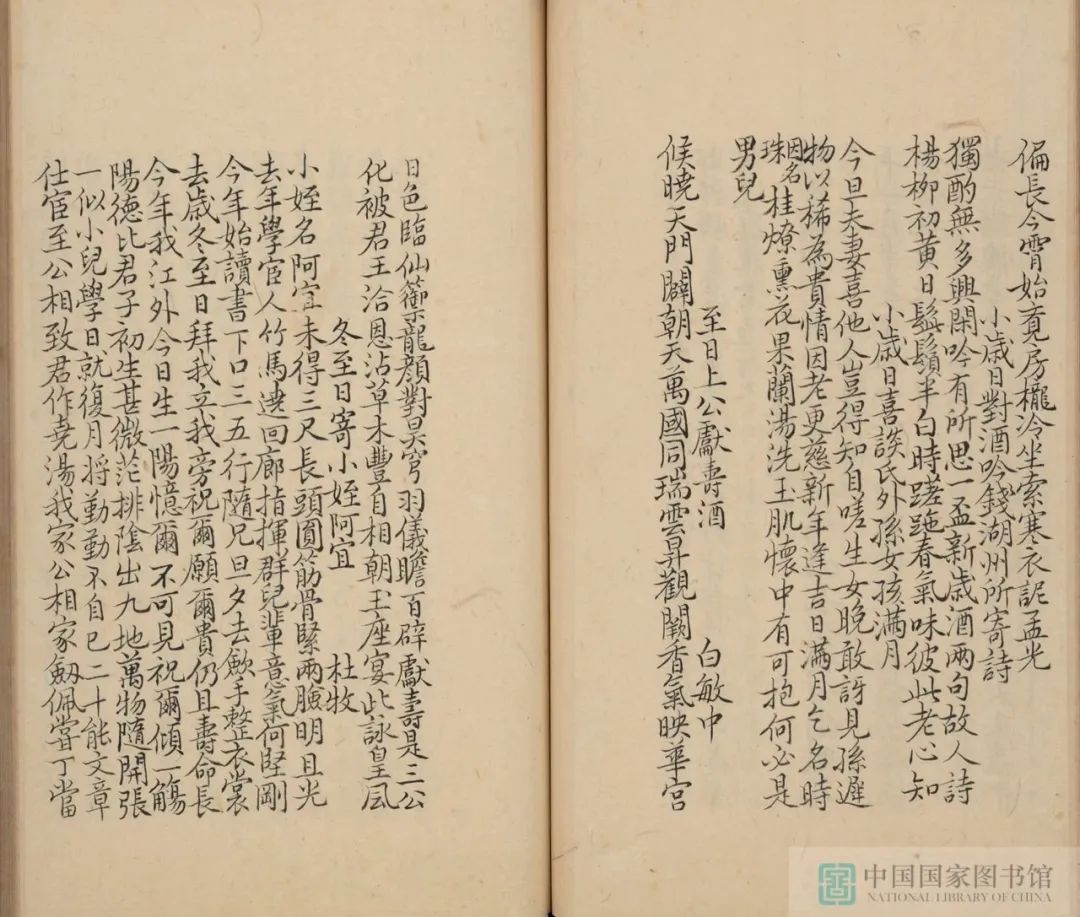 偏長今霄始覔房櫳冷坐索寒衣詑孟光
小歲日對酒吟錢湖州所寄詩
獨酌無多興閑吟有所思一盃新歲酒兩句故人詩
楊柳初黃日髭鬚半白時蹉跎春氣味彼此老心知
小歲日喜談氏外孫女孩滿月
今旦夫妻喜他人豈得知自嗟生女晚敢訝見孫遲
物以稀為貴情因老更慈新年逢吉日滿月乞名時
因名珠桂燎熏花果蘭湯洗玉肌懷中有可抱何必是
男兒
至日上公獻壽酒 白敏中
候曉天門闢朝天萬國同瑞雲昇觀闕香氣映華宮
日色臨仙籞龍顏對昊穹羽儀瞻百辟獻壽是三公
化被君王洽恩沾草木豐自相朝玉座宴此詠皇風
冬至日寄小姪阿宜 杜牧
小姪名阿宜未得三尺長頭圓筋骨緊兩臉明且光
去年學官人竹馬遶回廊指揮群兒輩意氣何堅剛
今年始讀書下口三五行隨兄旦夕去歛手整衣裳
去歲冬至日拜我立我旁祝爾願爾貴仍且壽命長
今年我江外今日生一陽憶爾不可見祝爾傾一觴
陽德比君子初生甚微茫排陰出九地萬物隨開張
一似小兒學日就復月將勤勤不自已二十能文章
仕宦至公相致君作堯湯我家公相家劔佩嘗丁當
中国国家图书馆
NATIONAL LIBRARY OF CHINA